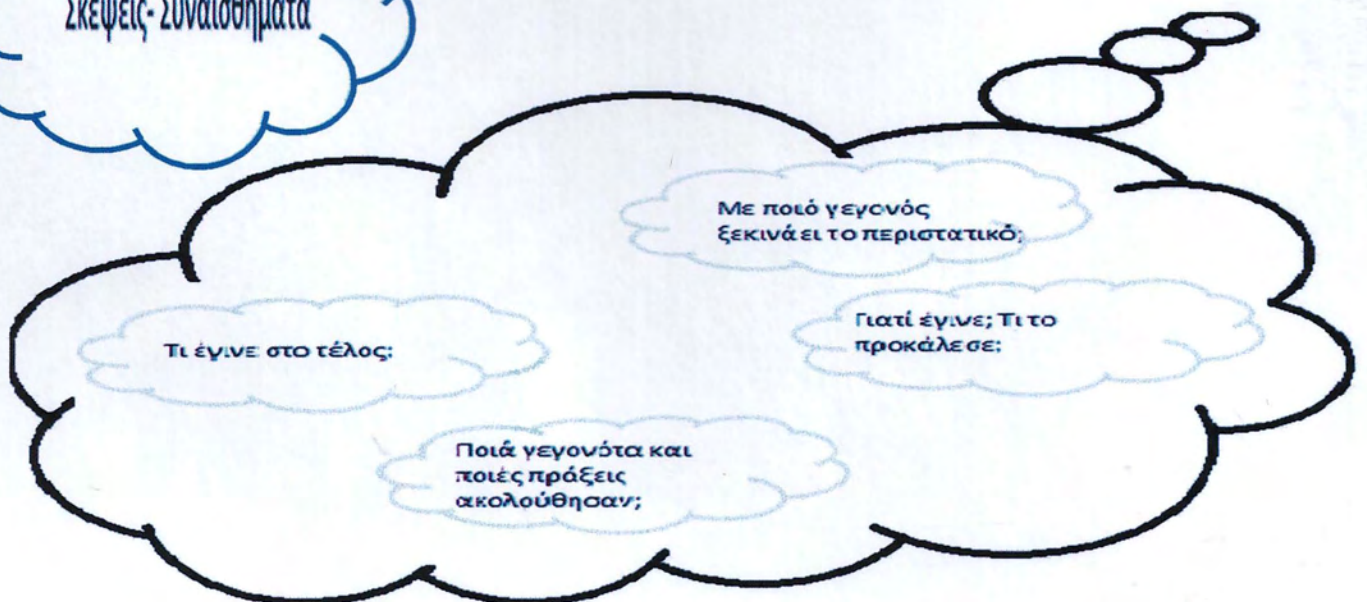 Σκέψεις- Συναισθήματα
Με ποιό γεγονός
ξεκινάει το περιστατικό;
Γιατί έγινε; Τι το
προκάλεσε;
Τι έγινε στο τέλος;
Ποιά γεγονότα και
ποιές πράξεις
ακολούθησαν;